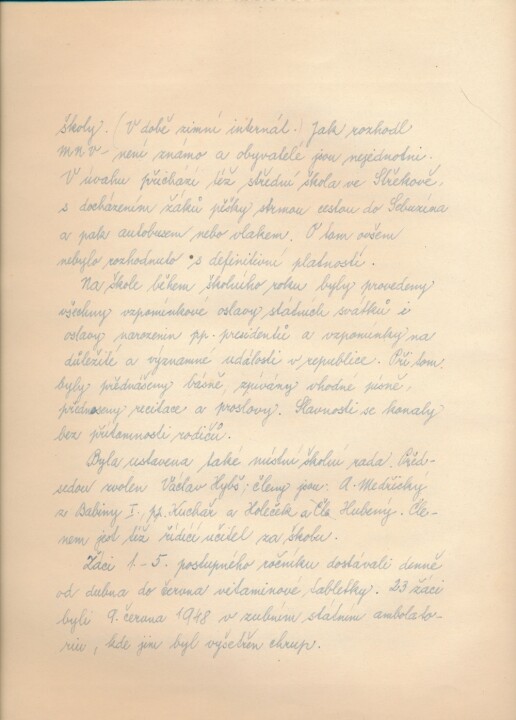 školy. (V době zimní internát.) Jak rozhodl
mnv - není známo a obyvatelé jsou nejednotni.
V úvahu přichází též střední škola ve Střekově,
s docházením žáků pěšky strmou cestou do Sebuzína
a pak autobusem nebo vlakem. O tom ovšem
nebylo rozhodnuto s definitivní platností.
Na škole během školního roku byly provedeny
všechny vzpomínkové oslavy státních svátků i
oslavy narozenin pp. presidentů a vzpomínky na
důležité a významné události v republice. Při tom
byly přednášeny básně, zpívány vhodné písně,
předneseny recitace a proslovy. Slavnosti se konaly
bez přítomnosti rodičů.
Byla ustavena také místní školní rada. Před-
sedou zvolen Václav Hybš; členy jsou: A. Medřický
z Babiny I., pp. Kuchař a Holeček a Hubený. Čle-
nem jest též řídící učitel za školu.
Žáci 1-5. postupného ročníku dostávali denně
od dubna do června vitaminové tabletky. 23 žáci
byli 9. června 1948 v zubním státním ambolato-
riu, kde jim byl vyšetřen chrup.